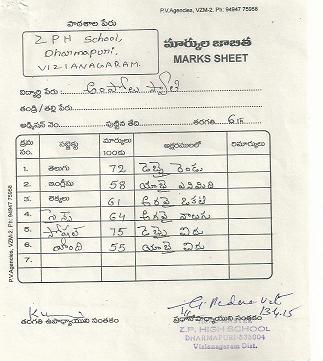 P.V.Agencies, VZM-2. Ph: 94947 75956
పాఠశాల పేరు
Z P H School,
Dharmapuri,
VIZIANAGARAM.
మార్కుల జాబితా
MARKS SHEET
విద్యార్థి పేరు
తండ్రి / తల్లి పేరు
అడ్మిషన్ నెం. పుట్టిన తేది. తరగతి 6
క్రమ సం. సబ్జెక్టు మార్కులు 100కు అక్షరములలో రిమార్కులు
1. తెలుగు 72 డెబ్బై రెండు
2. ఇంగ్లీషు 58 యాభై ఎనిమిది
3. లెక్కలు 61 అరవై ఒకటి
4. సైన్స్ 64 అరవై నాలుగు
5. సోషల్ 75 డెబ్బై ఐదు
6. హిందీ 55 యాభై ఐదు
7.
P.V.Agencies, VZM-2. Ph: 94947 75956
తరగతి ఉపాధ్యాయుని సంతకం ప్రధానోపాధ్యాయుని సంతకం
Z.P. HIGH SCHOOL
DHARMAPURI-535004
Vizianagaram Dist.